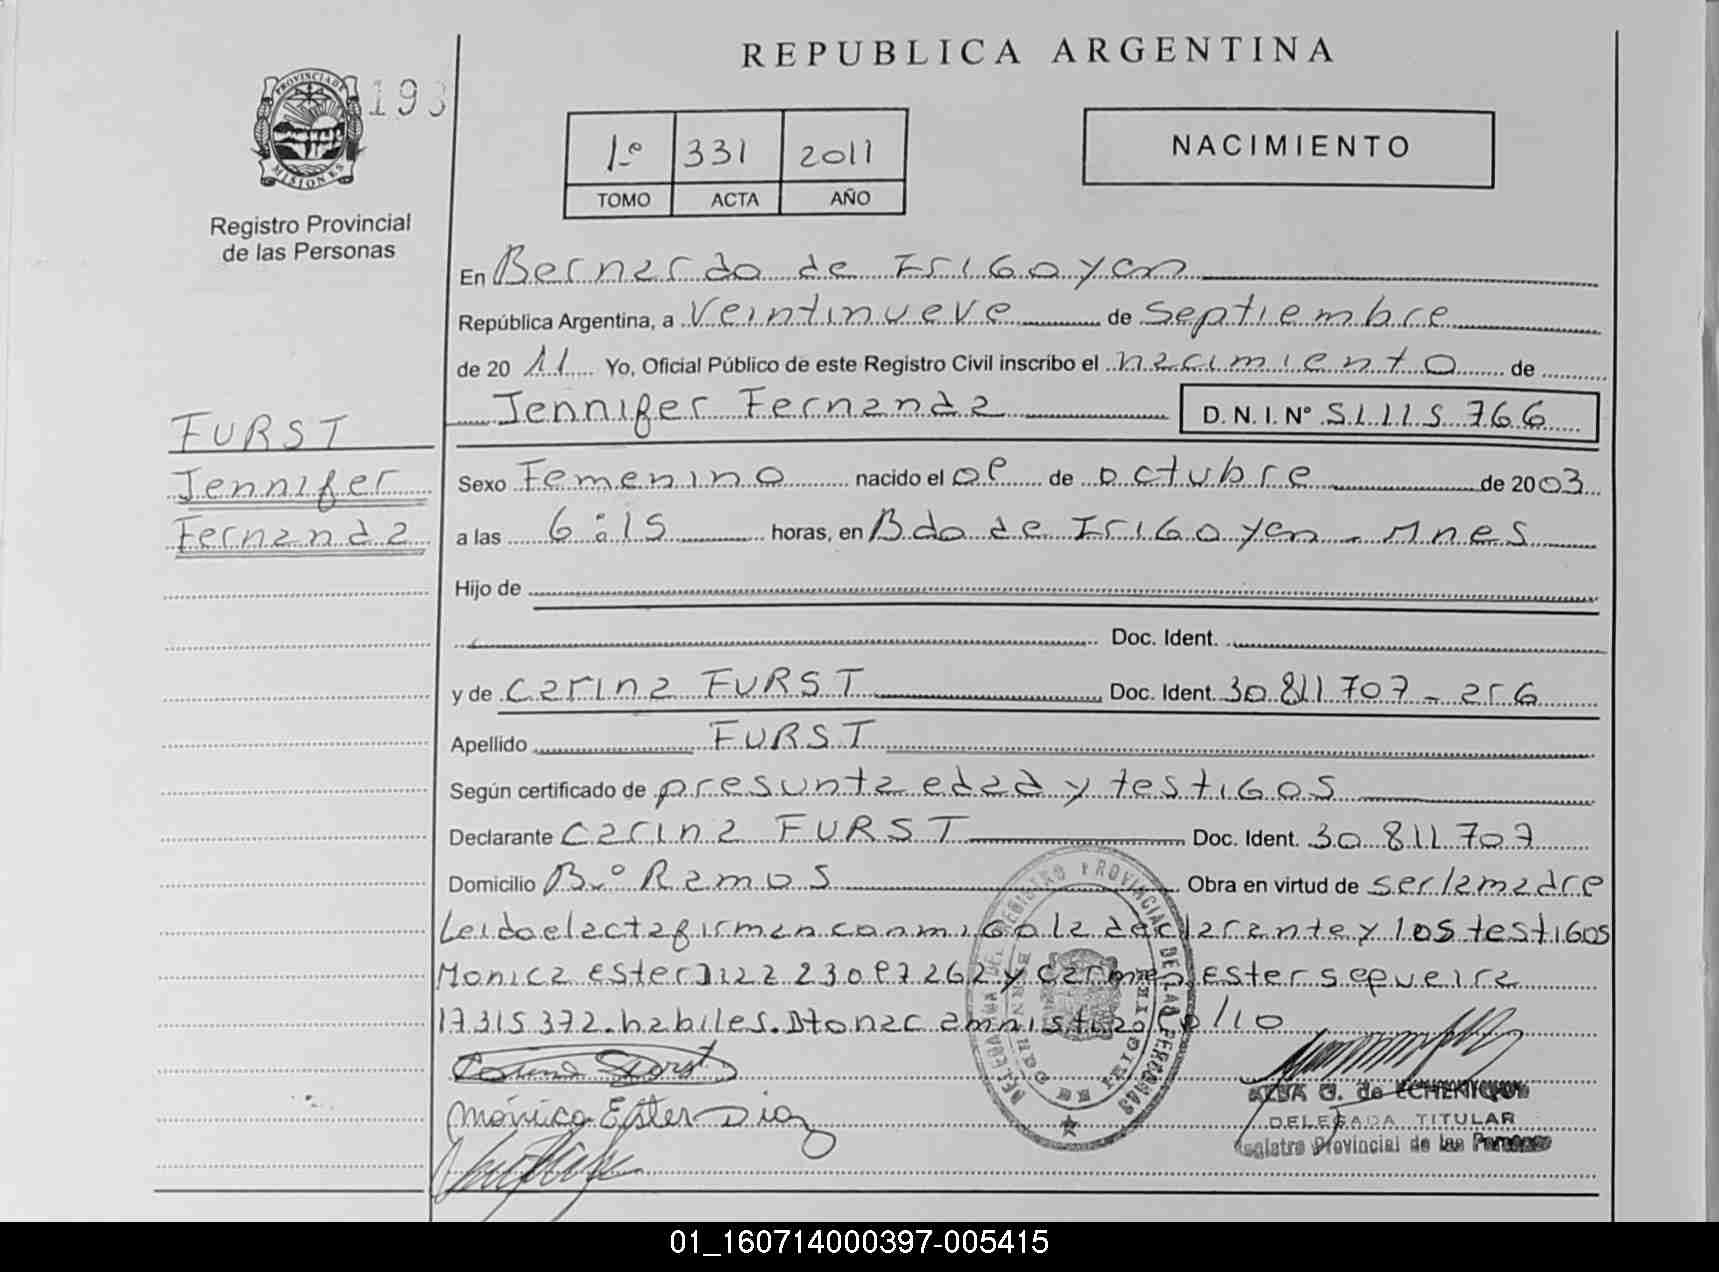 REPUBLICA ARGENTINA
PROVINCIA DE MISIONES
193
1º 331 2011
TOMO ACTA AÑO
NACIMIENTO
Registro Provincial
de las Personas
En Bernardo de Irigoyen
República Argentina, a Veintinueve de septiembre
de 20 11 Yo, Oficial Público de este Registro Civil inscribo el nacimiento de
Jennifer Fernanda D. N. I. Nº 51.115.766
FURST
Jennifer
Fernanda
Sexo Femenino nacido el 08 de octubre de 2003
a las 6:15 horas, en Bdo de Irigoyen - Mnes
Hijo de
Doc. Ident.
y de Carina FURST Doc. Ident. 30.811.707 - arG
Apellido FURST
Según certificado de presunta edad y testigos
Declarante Carina FURST Doc. Ident. 30.811.707
Domicilio Bº Ramos Obra en virtud de ser la madre
Leido el acta firman conmigo la declarante y los testigos
Monica Ester y Carmen Ester sequeira
17315372. habiles. Dto nac amnistia /10
Mónica Ester Diaz
REGISTRO PROVINCIAL DE LAS PERSONAS
DELEGADA TITULAR
Registro Provincial de las Personas
01_160714000397-005415